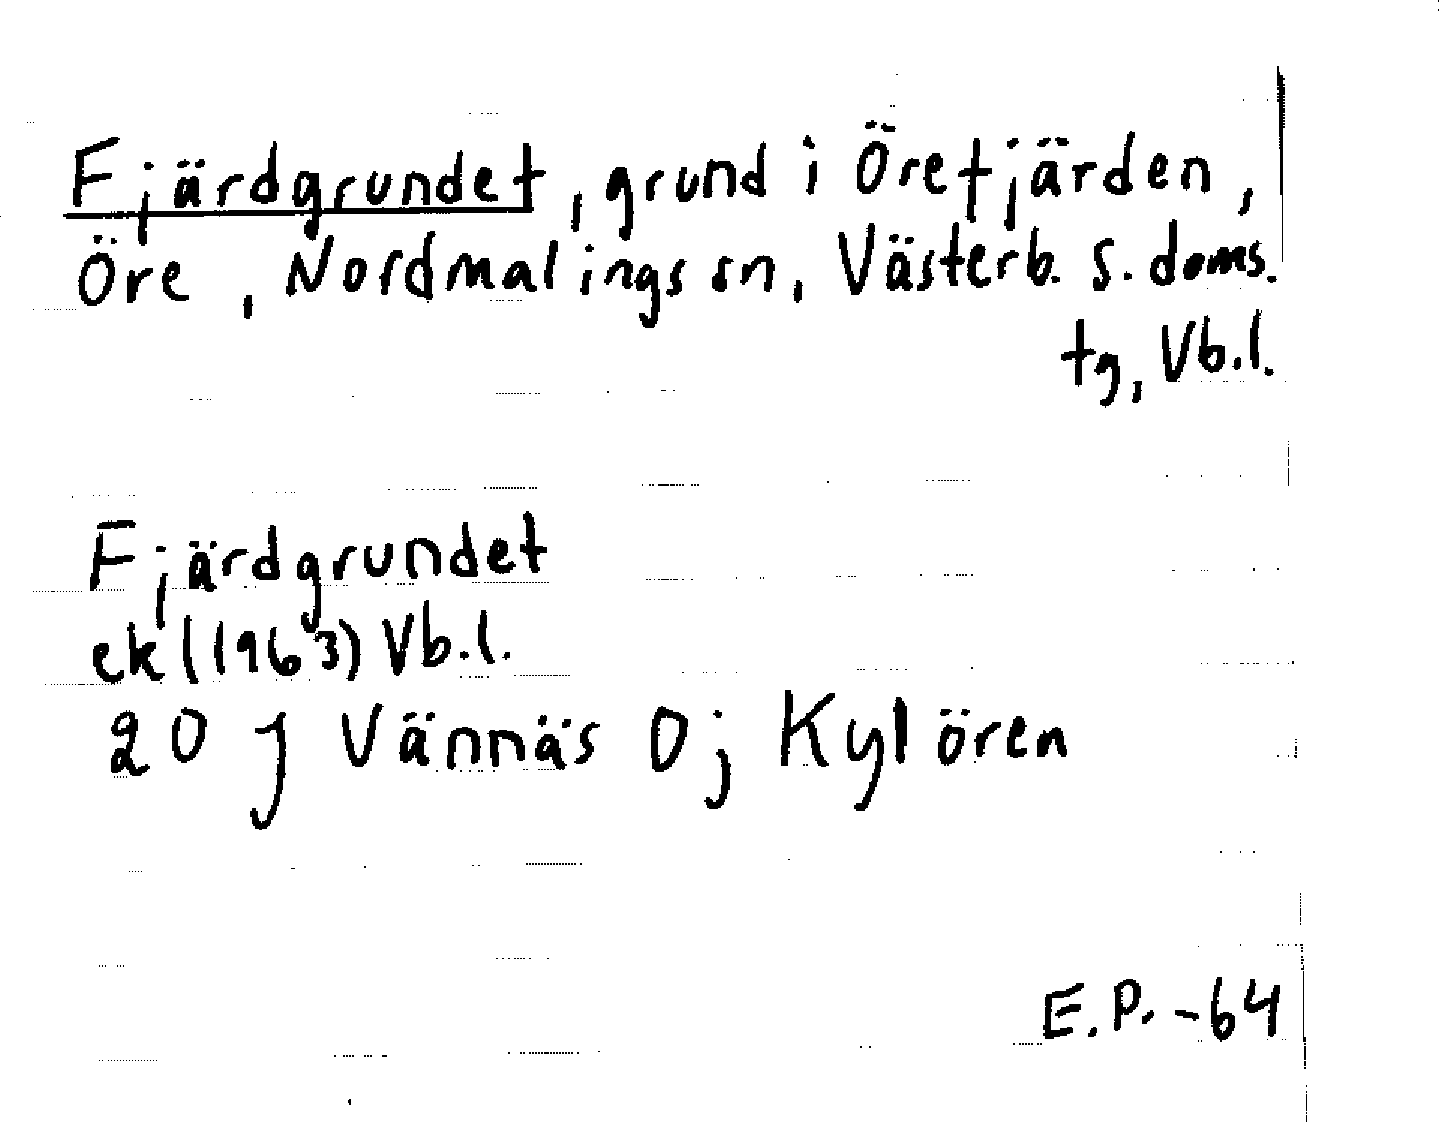 Fjärdgrundet, grund i Örefjärden,
Öre, Nordmalings sn, Västerb. s. doms.
tg, Vb.l.
Fjärdgrundet
ek (1963) Vb.l.
20 J Vännäs Oj Kylören
E.P. -64